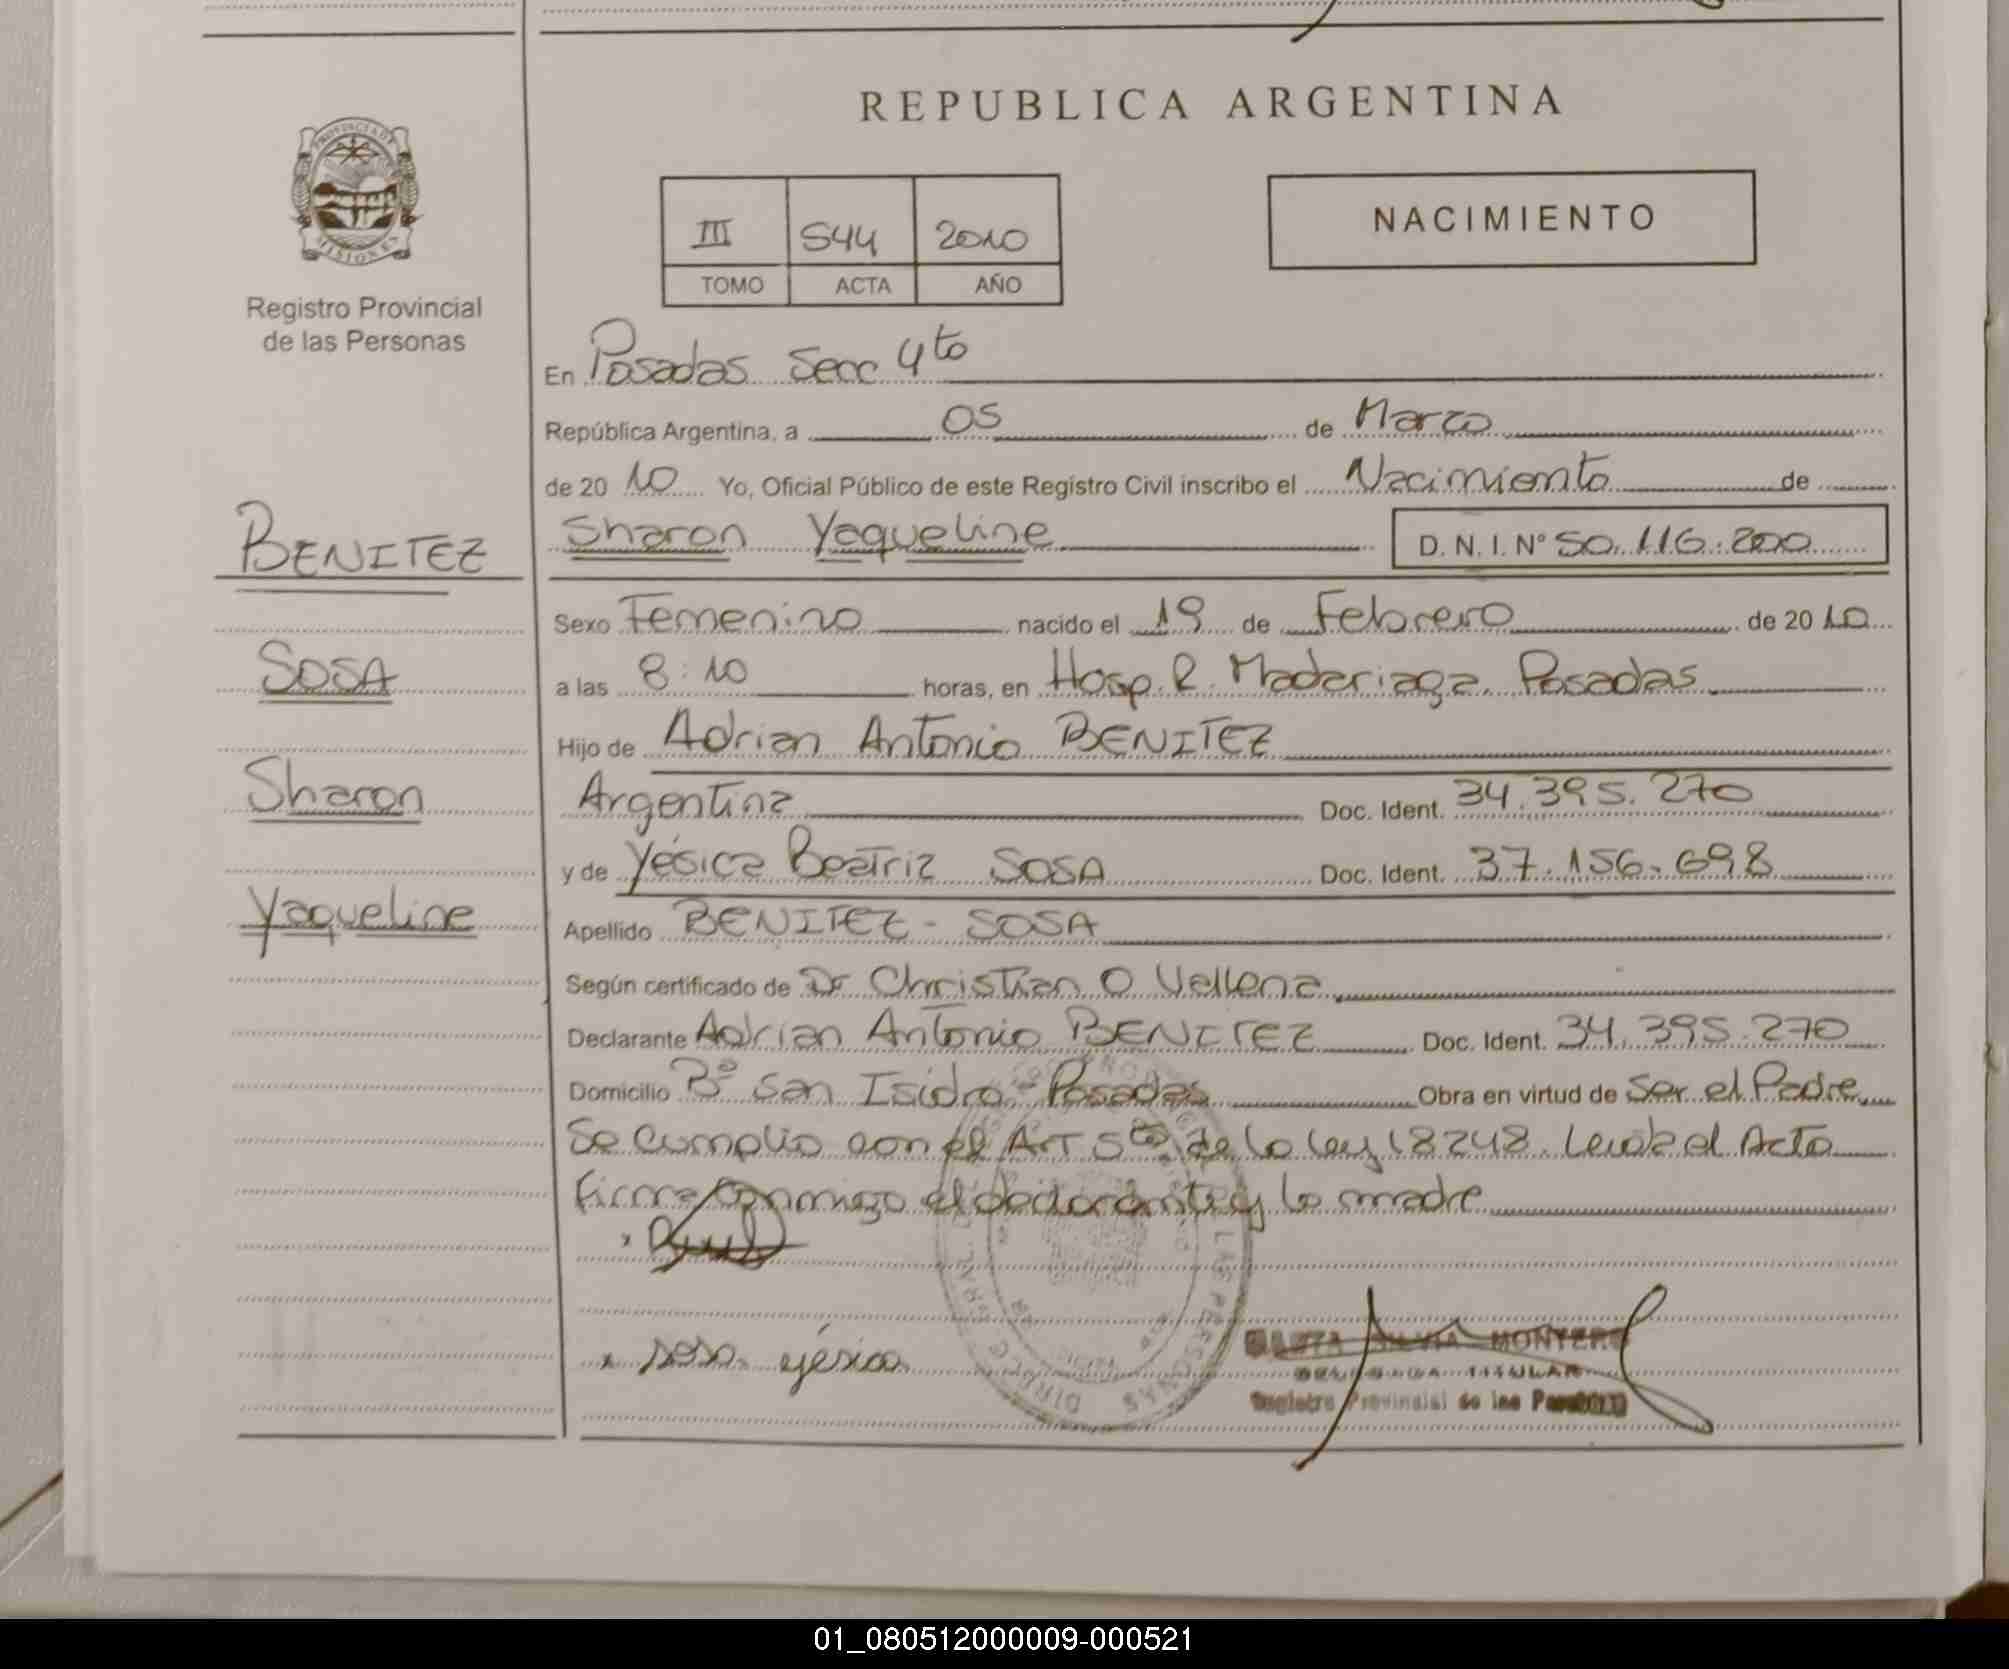 REPUBLICA ARGENTINA
III 544 2010
TOMO ACTA AÑO
NACIMIENTO
PROVINCIA DE
MISIONES
Registro Provincial
de las Personas
BENITEZ
SOSA
Sharon
Yaqueline
En Posadas Secc 4to
República Argentina, a 05 de Marzo
de 20 10 Yo, Oficial Público de este Registro Civil inscribo el Nacimiento de
Sharon Yaqueline D. N. I. N° 50.116.200
Sexo Femenino nacido el 19 de Febrero de 20 10
a las 8:10 horas, en Hosp. R. Madariaga Posadas
Hijo de Adrian Antonio BENITEZ
Argentina Doc. Ident. 34.395.270
y de Yésica Beatriz SOSA Doc. Ident. 37.156.698
Apellido BENITEZ - SOSA
Según certificado de Dr Christian O
Declarante Adrian Antonio BENITEZ Doc. Ident. 34.395.270
Domicilio B° San Isidro - Posadas Obra en virtud de Ser el Padre
Se cumplio con el Art 5to de la ley 18248. Leida el Acta
firma conmigo el declarante y la madre
x Sosa yésica
MONTERO
DELEGADA TITULAR
Registro Provincial de las Personas
01_080512000009-000521